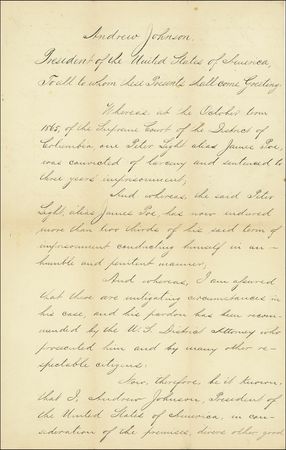 Andrew Johnson,
President of the United States of America,
To all to whom these Presents shall come, Greeting:
Whereas, at the October term
1865, of the Supreme Court of the District of
Columbia one Peter Light alias James Poe,
was convicted of larceny and sentenced to
three years' imprisonment;
And whereas, the said Peter
Light, alias James Poe, has now endured
more than two thirds of his said term of
imprisonment conducting himself in an
humble and penitent manner;
And whereas, I am assured
that there are mitigating circumstances in
his case, and his pardon has been recom-
mended by the U.S. District Attorney who
prosecuted him and by many other re-
spectable citizens:
Now, therefore, be it known,
that I, Andrew Johnson, President of
the United States of America, in con-
sideration of the premises, divers other good